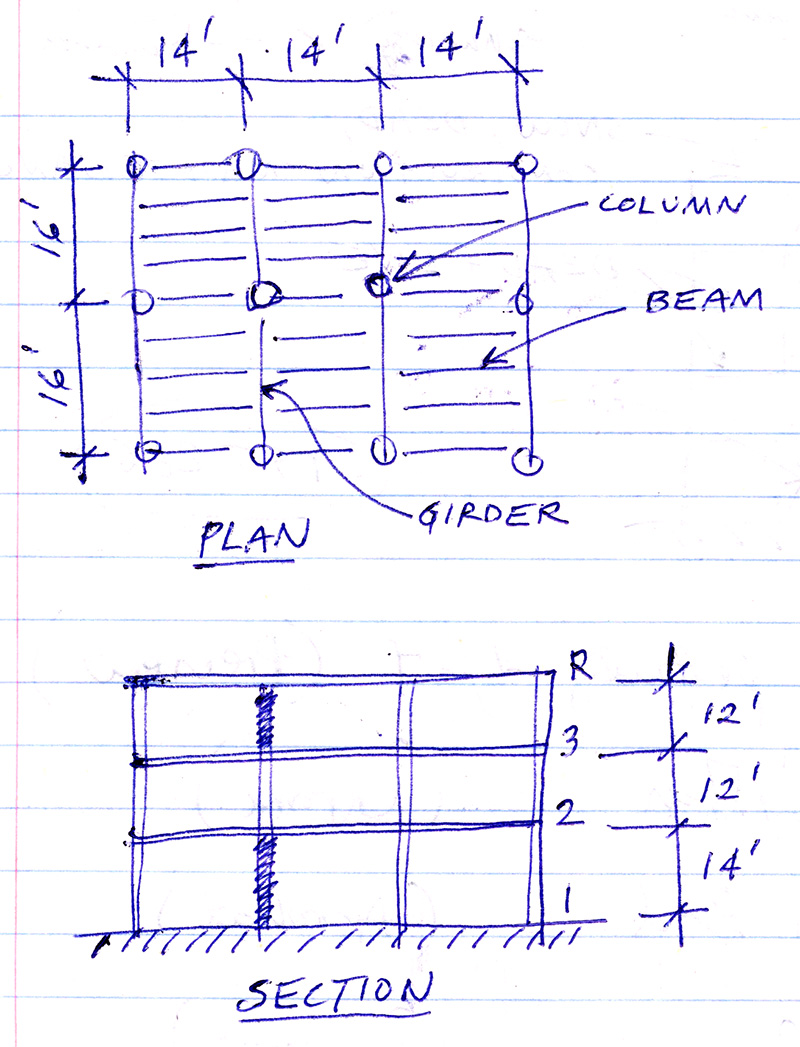 14' 14' 14'
16'
COLUMN
BEAM
16'
GIRDER
PLAN
R
12'
3
12'
2
14'
1
SECTION